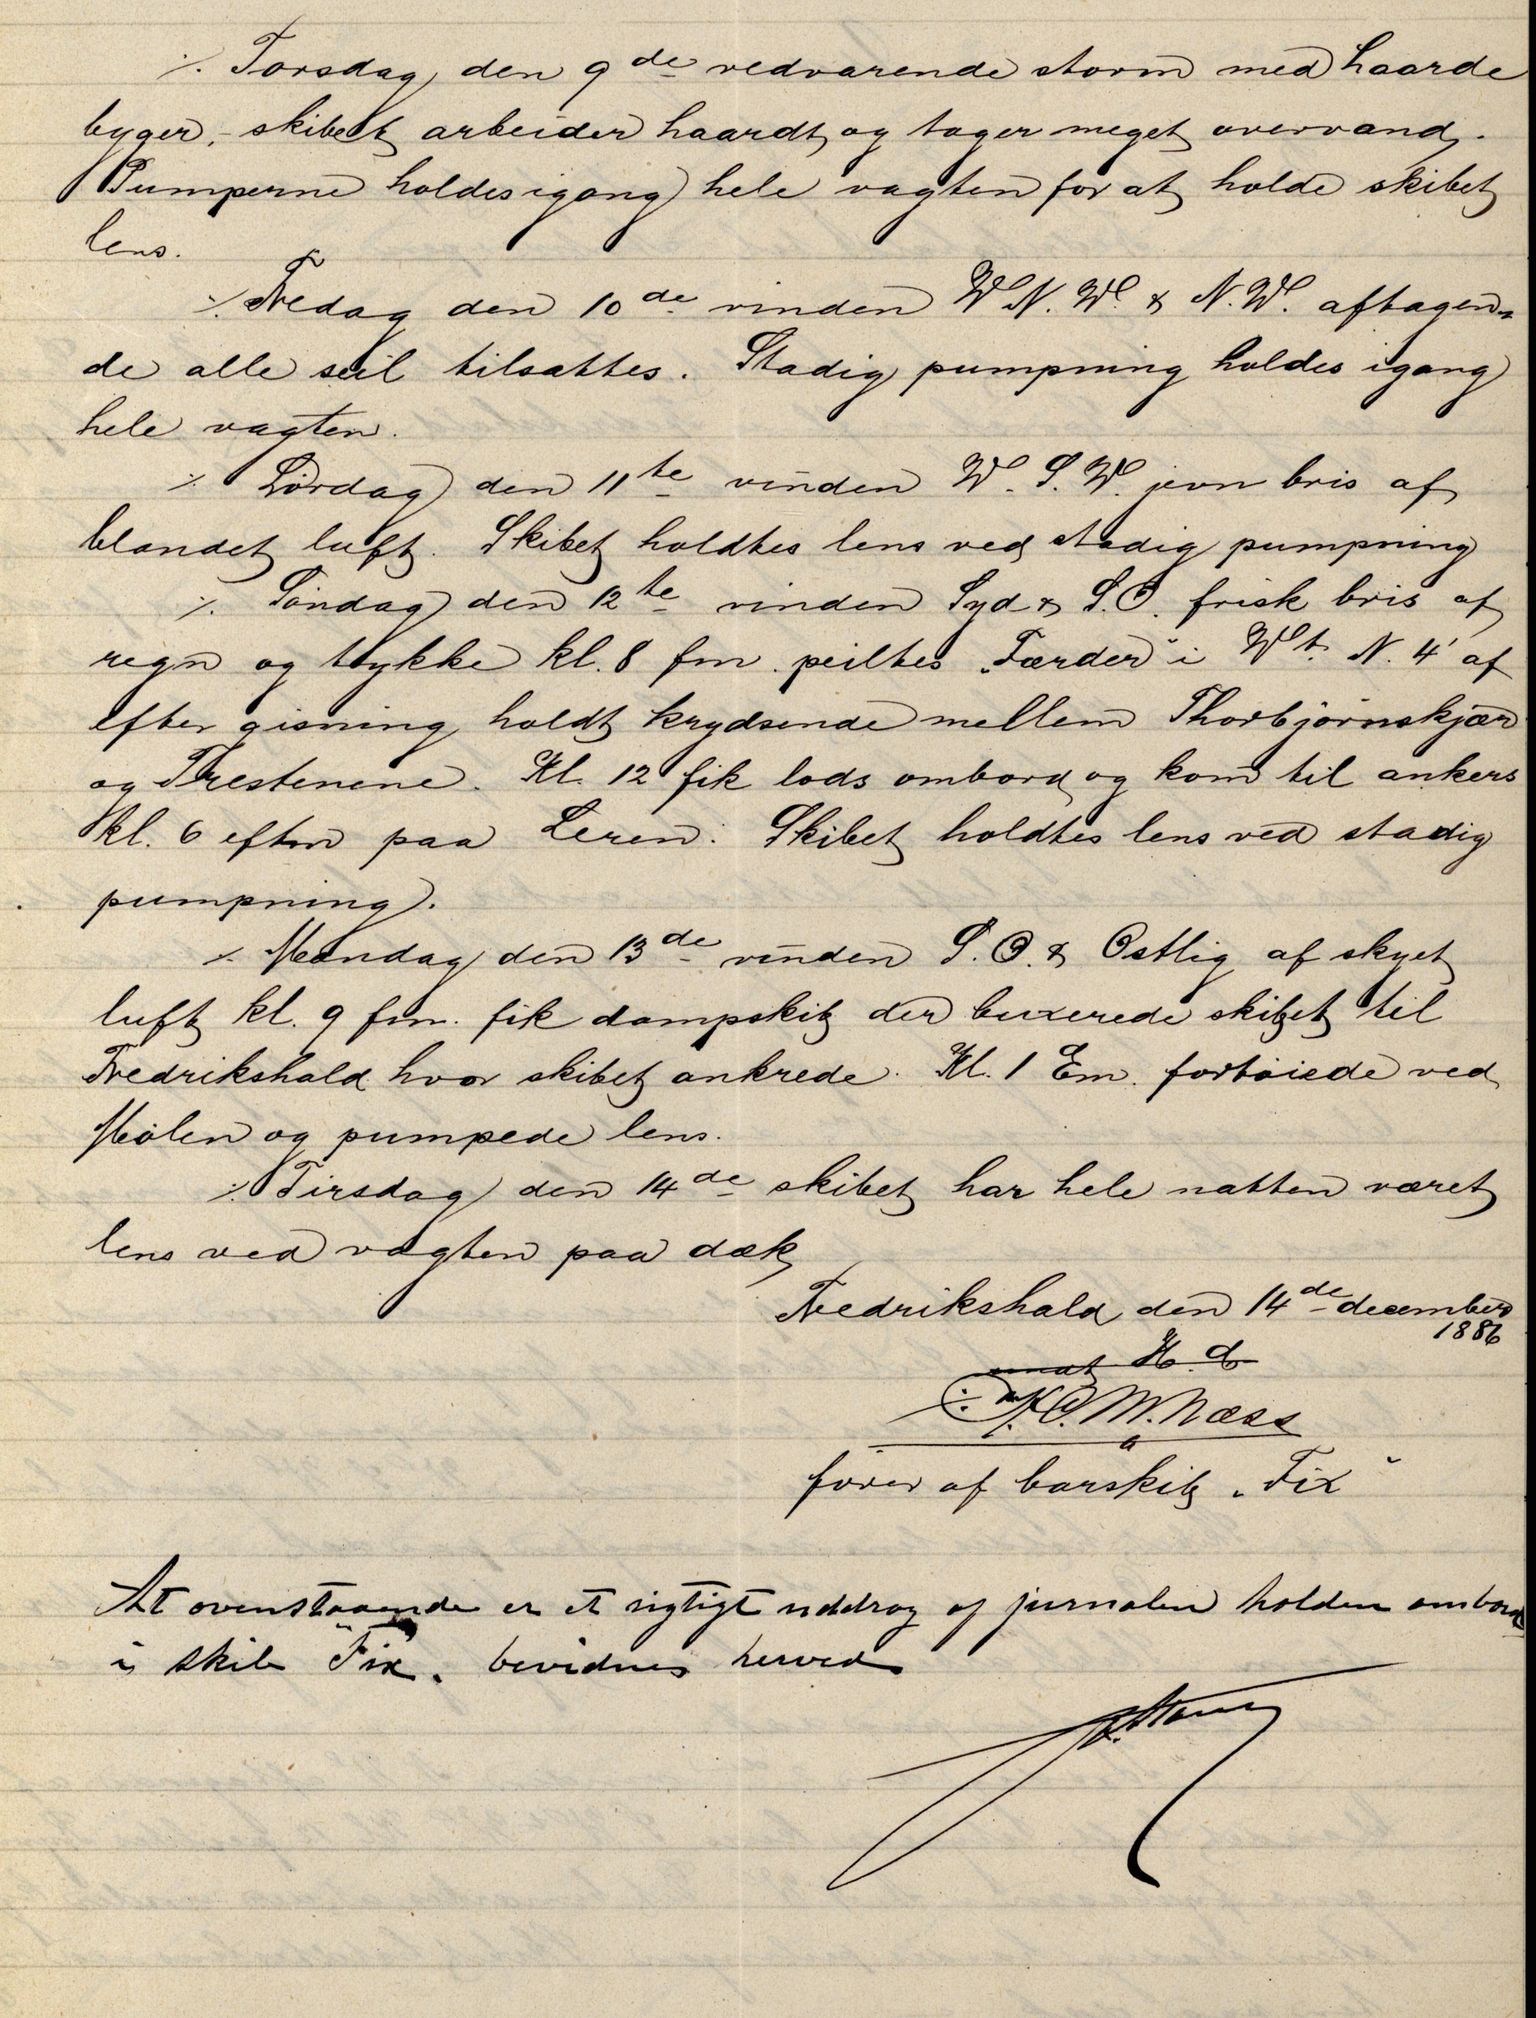 ⁒ Torsdag den 9de vedvarende storm med haarde
byger, - skibet arbeider haardt og tager meget overvand.
Pumperne holdes igang hele vagten for at holde skibet
lens.
⁒ Fredag den 10de vinden W.N.W. & N.W. aftagen-
de alle seil tilsattes. Stadig pumpning holdes igang
hele vagten.
⁒ Lørdag den 11te vinden W.S.W. jevn bris af
blandet luft. Skibet holdtes lens ved stadig pumpning
⁒ Søndag den 12te vinden Syd & S.O. frisk bris af
regn og tykke kl. 8 fm. peiltes "Færder" i Wt. N. 4' af
efter gisning holdt krydsende mellem Thorbjørnskjær
og Trestenene. Kl. 12 fik lods ombord og kom til ankers
kl. 6 eftm paa Leren. Skibet holdtes lens ved stadig
pumpning.
⁒ Mandag den 13de vinden S.O. & Ostlig af skyet
luft kl. 9 fm. fik dampskib der buxerede skibet til
Fredrikshald hvor skibet ankrede. Kl. 1 Em. fortøiede ved
Mølen og pumpede lens.
⁒ Tirsdag den 14de skibet har hele natten været
lens ved vagten paa dæk
Fredrikshald den 14de december
1886
M. Næss
fører af barskib "Fix"
At ovenstaaende er et rigtigt uddrag af jurnalen holden ombord
i skib "Fix". bevidnes herved